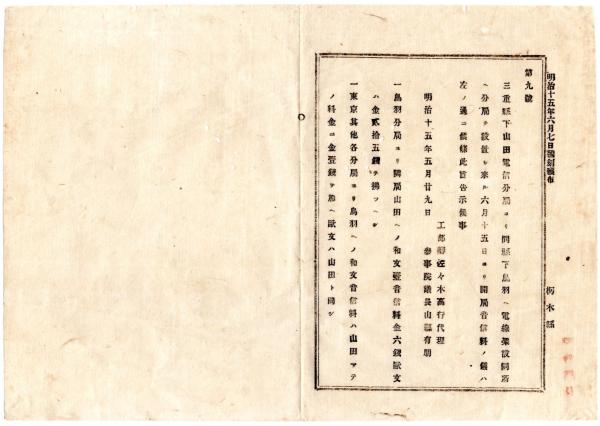 明治十五年六月七日飜刻頒布
栃木縣
第九號
三重縣下山田電信分局ヨリ同縣下鳥羽ヘ電線架設同所
ヘ分局ヲ設置シ來ル六月十五日ヨリ開局音信料ノ儀ハ
左ノ通ニ候條此旨告示候事
明治十五年五月廿九日
工部卿佐々木高行代理
參事院議長山縣有朋
一鳥羽分局ヨリ隣局山田ヘノ和文壹音信料金六錢歐文
ハ金貳拾五錢ヲ拂フヘシ
一東京其他各分局ヨリ鳥羽ヘノ和文音信料ハ山田マテ
ノ料金ニ金壹錢ヲ加ヘ歐文ハ山田ト同シ